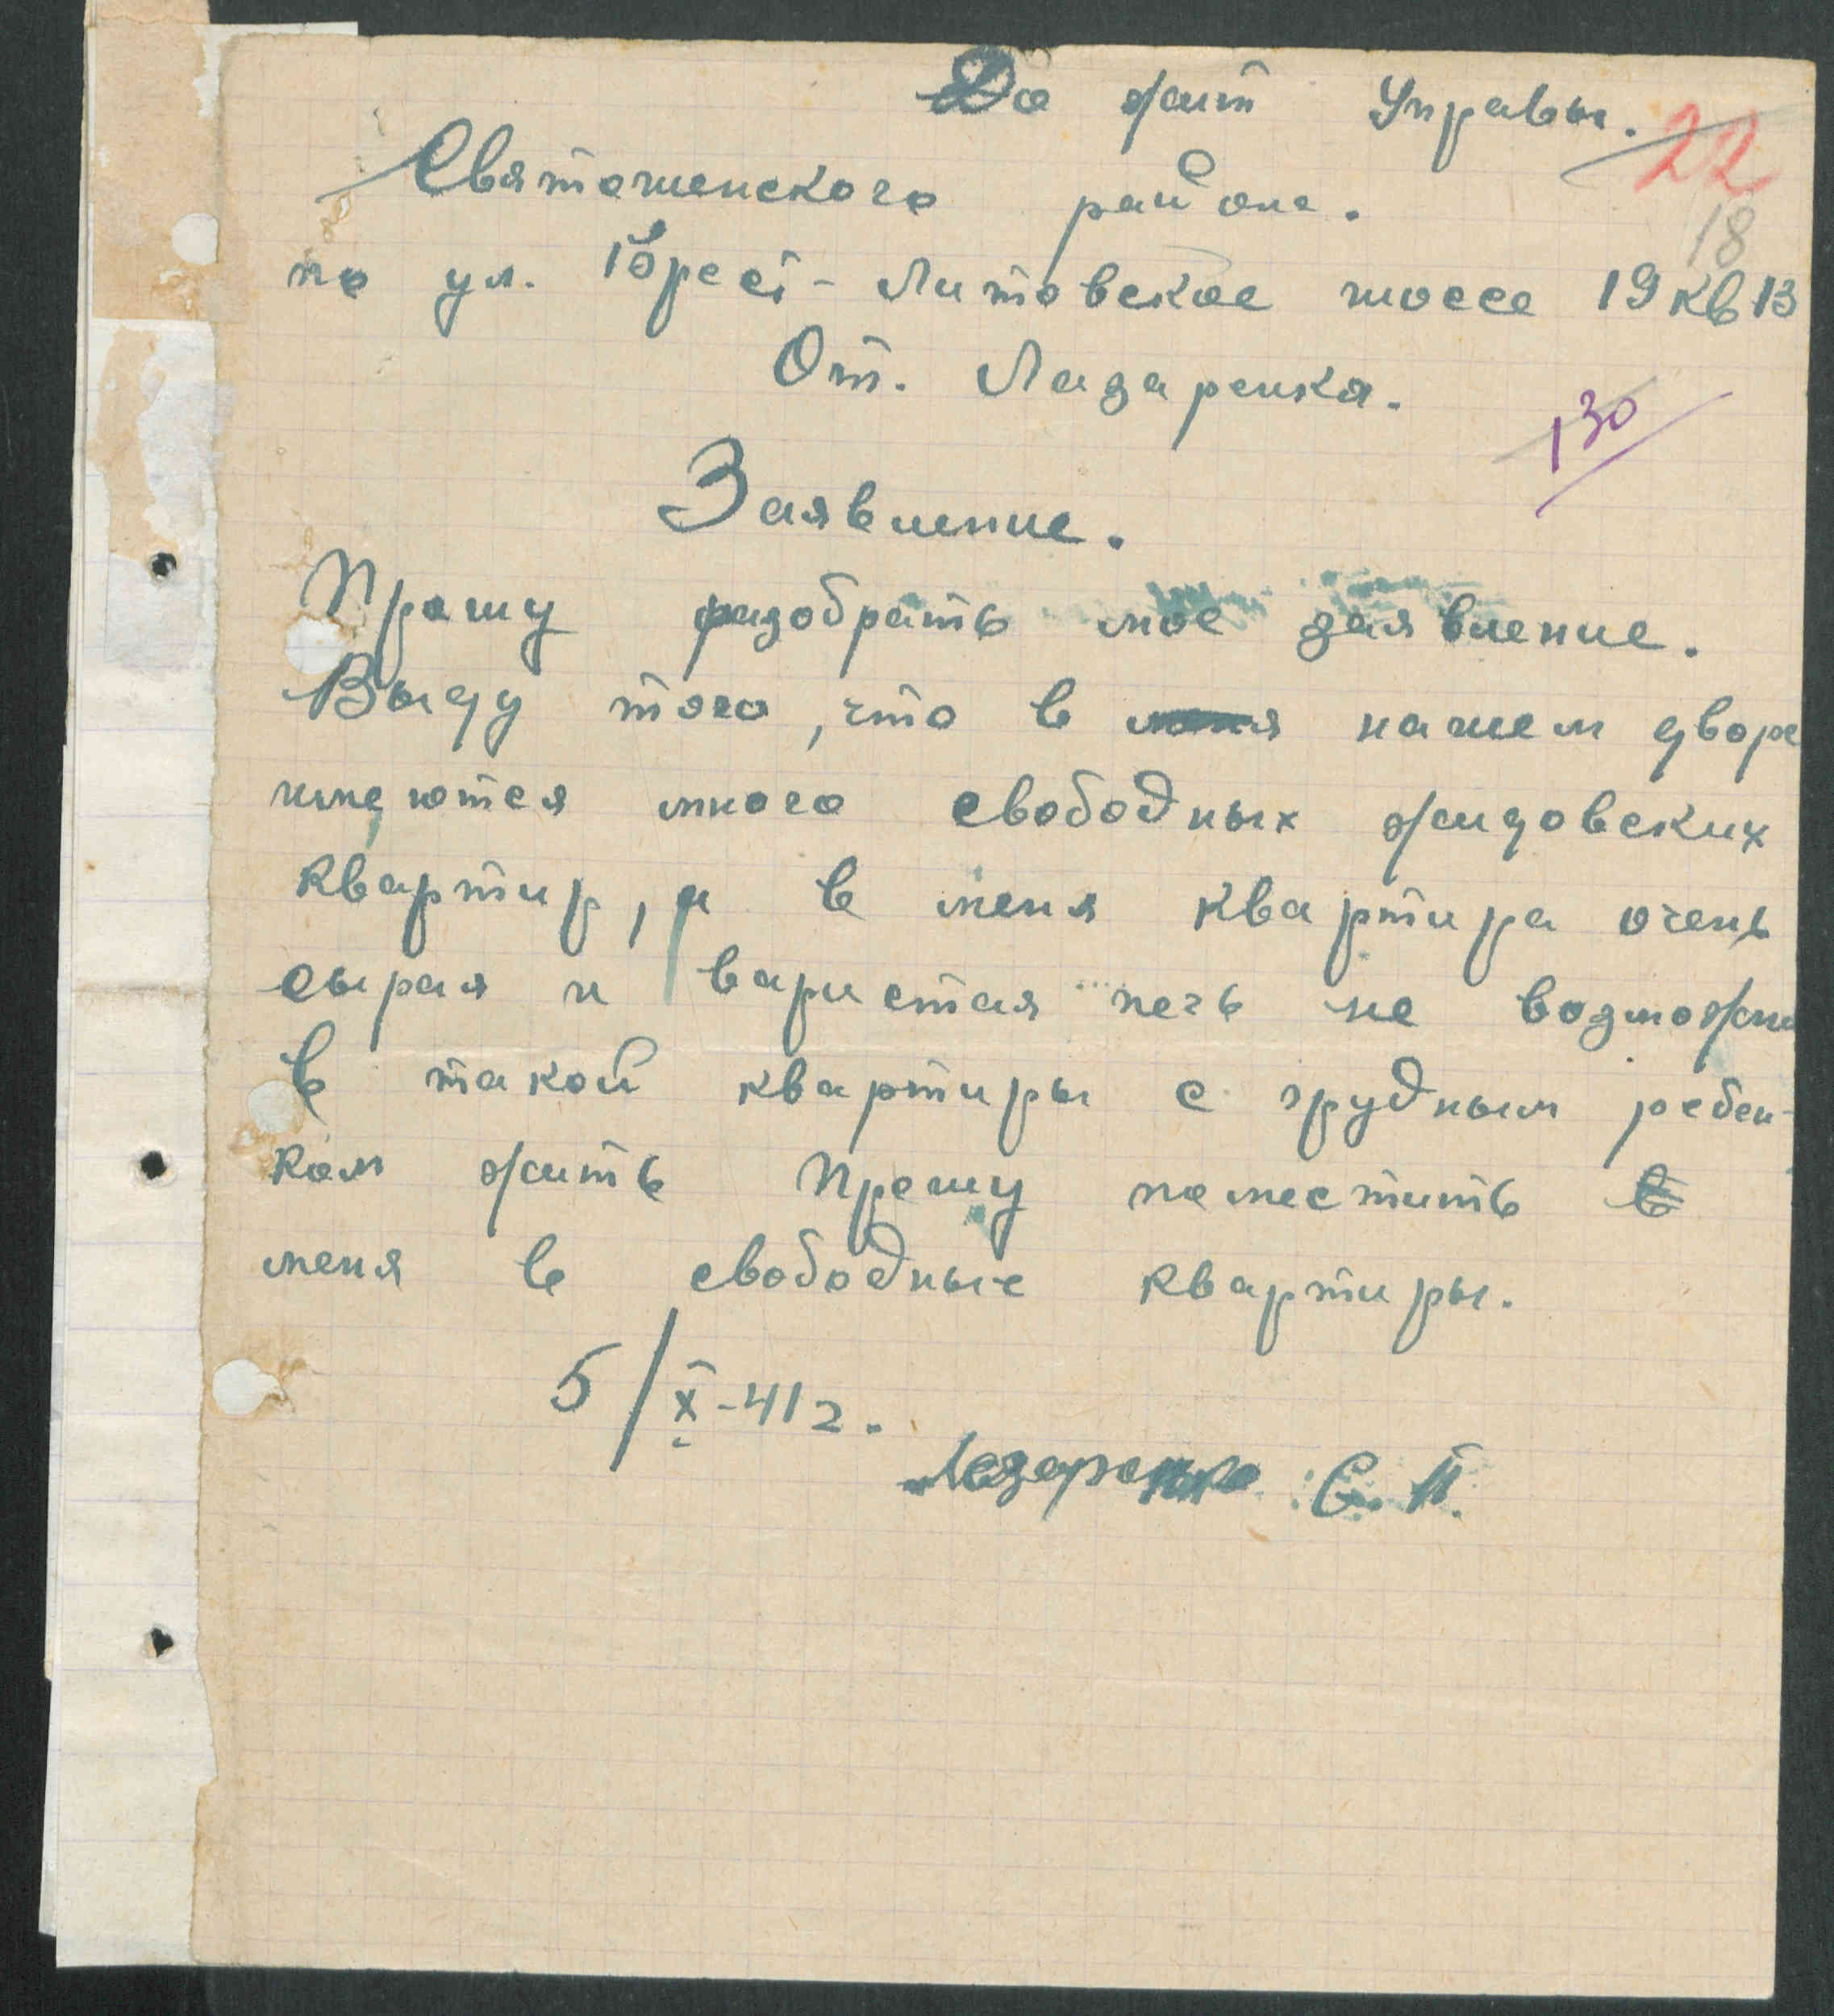 До жит Управы.
22
Святошенского района.
18
по ул. Брест-Литовское шоссе 19 кв 13
От. Лазаренка.
130
Заявление.
Прошу разобрать мое заявление.
Выду того, что в нашем дворе
имеются много свободных жидовских
квартир, а в меня квартира очень
сырая и варистая печь не возможно
в такой квартиры с грудным ребен-
ком жить Прошу поместить
меня в свободные квартиры.
5/X-41 г.
Лазаренко С. П.